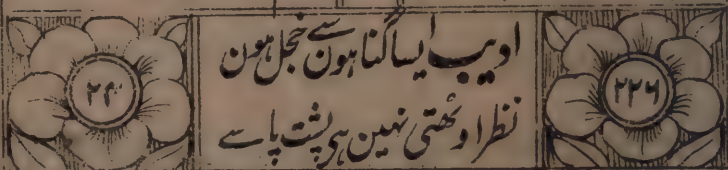 ۲۲۶
ادیب ایسا گناہون سے خجل ہون
نظر اوٹھتی نہین ہی پشت پا سے